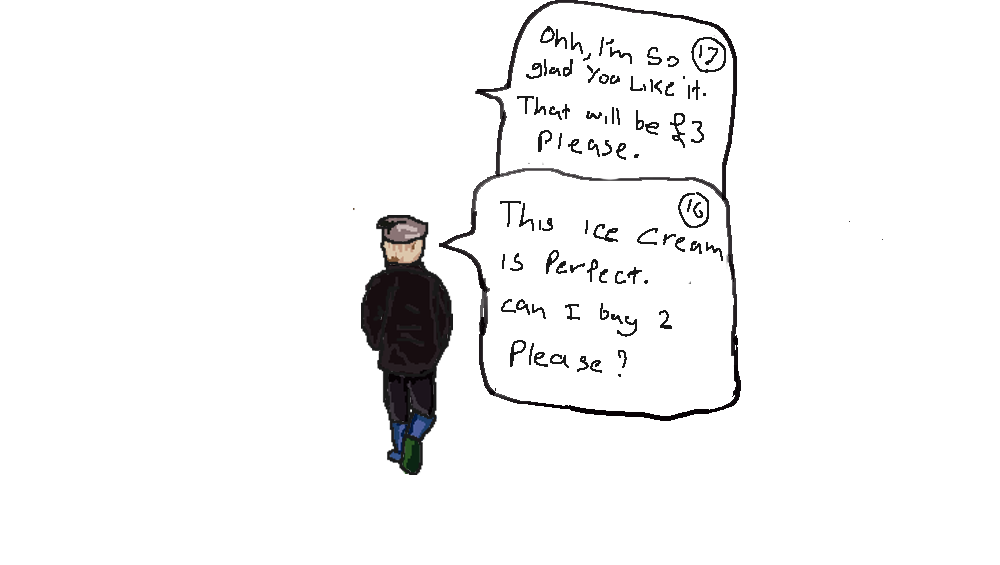 Ohh, I'm so 17
glad You Like it.
That will be £3
Please.
16
This ice cream
is Perfect.
can I buy 2
Please?